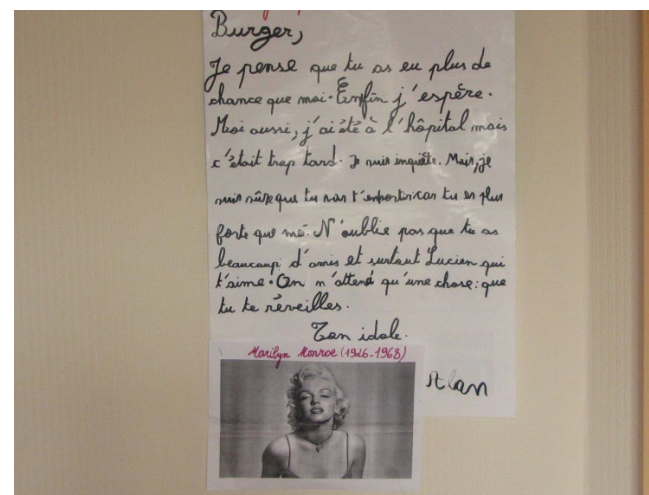 Burger,
Je pense que tu as eu plus de
chance que moi. Enfin j'espère.
Moi aussi, j'ai été à l'hôpital mais
c'était trop tard. Je suis inquiète. Mais, je
suis sûre que tu vas t'en sortir car tu es plus
forte que moi. N'oublie pas que tu as
beaucoup d'amis et surtout Lucien qui
t'aime. On n'attend qu'une chose: que
tu te réveilles.
Ton idole.
Marilyn Monroe (1926-1968)
Alan